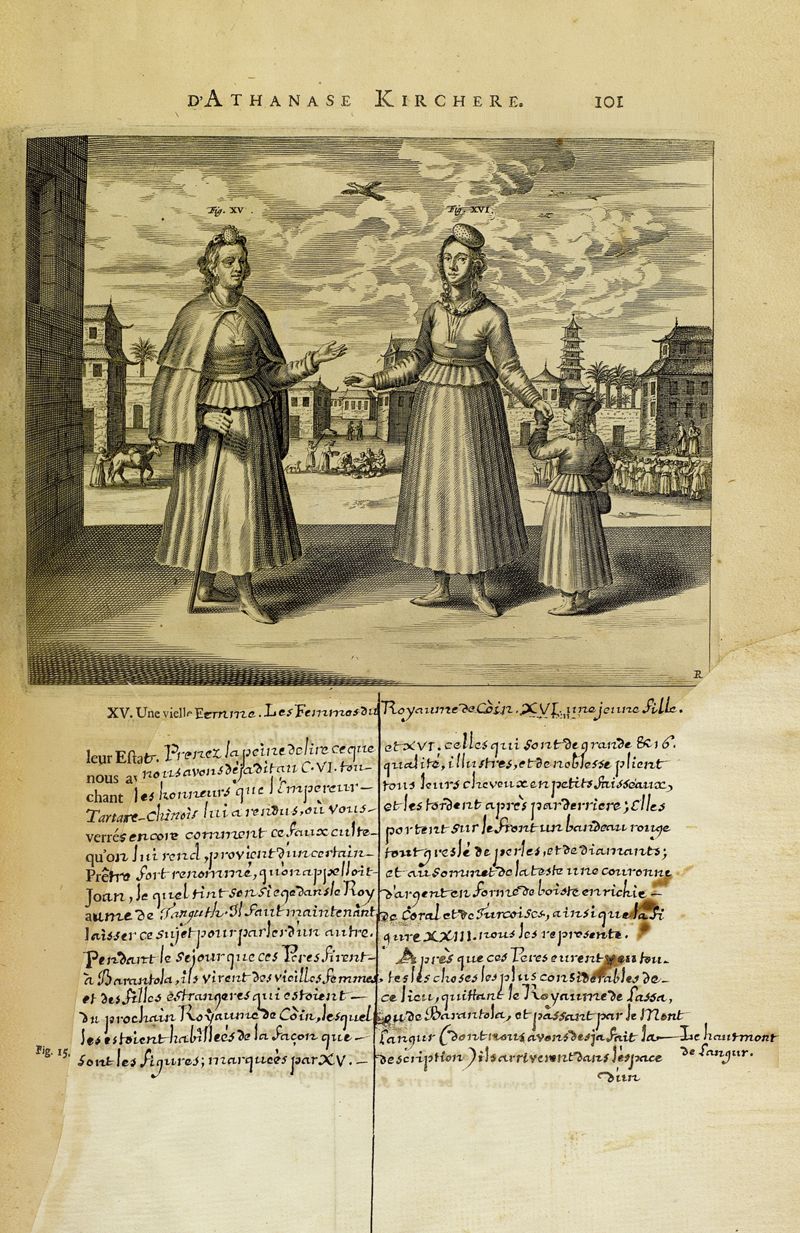 D'ATHANASE KIRCHERE. 101
Fig. XV.
Fig. XVI.
R
XV. Une vielle Femme. Les Femmes du Royaume de Còin. XVI. une jeune fille.
leur Estat. Prenez la peine de lire ce que
nous avons deja dit au C. VI. tou-
chant les honneurs que l'Empereur-
Tartare-Chinois lui a rendus, où vous-
verrés encore comment ce faux culte-
qu'on lui rend, provient d'un certain-
Prêtre fort renommé, qu'on appelloit-
Joan, le quel tint son siege dans le Roy
aume de Tanguth. Il faut maintenant
laisser ce sujet pour parler d'un autre.
Pendant le sejour que ces Peres firent-
à Barantola, ils virent des vieilles femmes
et des filles estrangeres qui estoient —
du prochain Royaume de Còin, lesquel
les estoient habillées de la façon que —
Fig. 15,
sont les figures; marquées par XV. —
et XVI. celles qui sont de grande & 16.
qualité, illustres, et de noblesse plient
tous leurs cheveux en petits faisseaux,
et les tordent après par derriere; Elles
portent sur le front un bandeau rouge
tout greslé de perles, et de diamants;
et au sommet de la teste une couronne
d'argent en forme de boiste enrichie —
de Coral et de Turcoises, ainsi que la fi
gure XXIII. nous les represente.
Après que ces Peres eurent veu tou-
tes les choses les plus considerables de-
ce lieu, quittant le Royaume de Lassa,
ou de Barantola, et passant par le Mont
Langur (dont nous avons desja fait la —
description) ils arriverent dans l'espace
Le haut mont
de Langur.
d'un